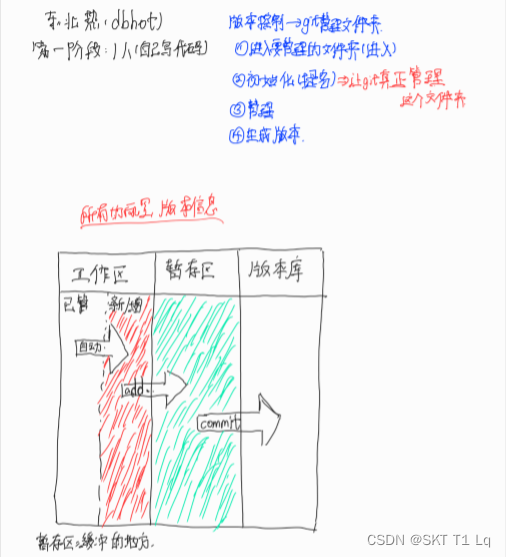 东北热:dbhot)
第一阶段:1人(自己写代码)
版本控制→git管理文件夹
①进入要管理的文件夹(进入)
②初始化(提名)⇒让git真正管理
这个文件夹
③管理
④生成版本.
版本信息
工作区 暂存区 版本库
已管 新/旧
自动
add
commit
暂存区:缓冲的地方.
CSDN @SKT T1 Lq